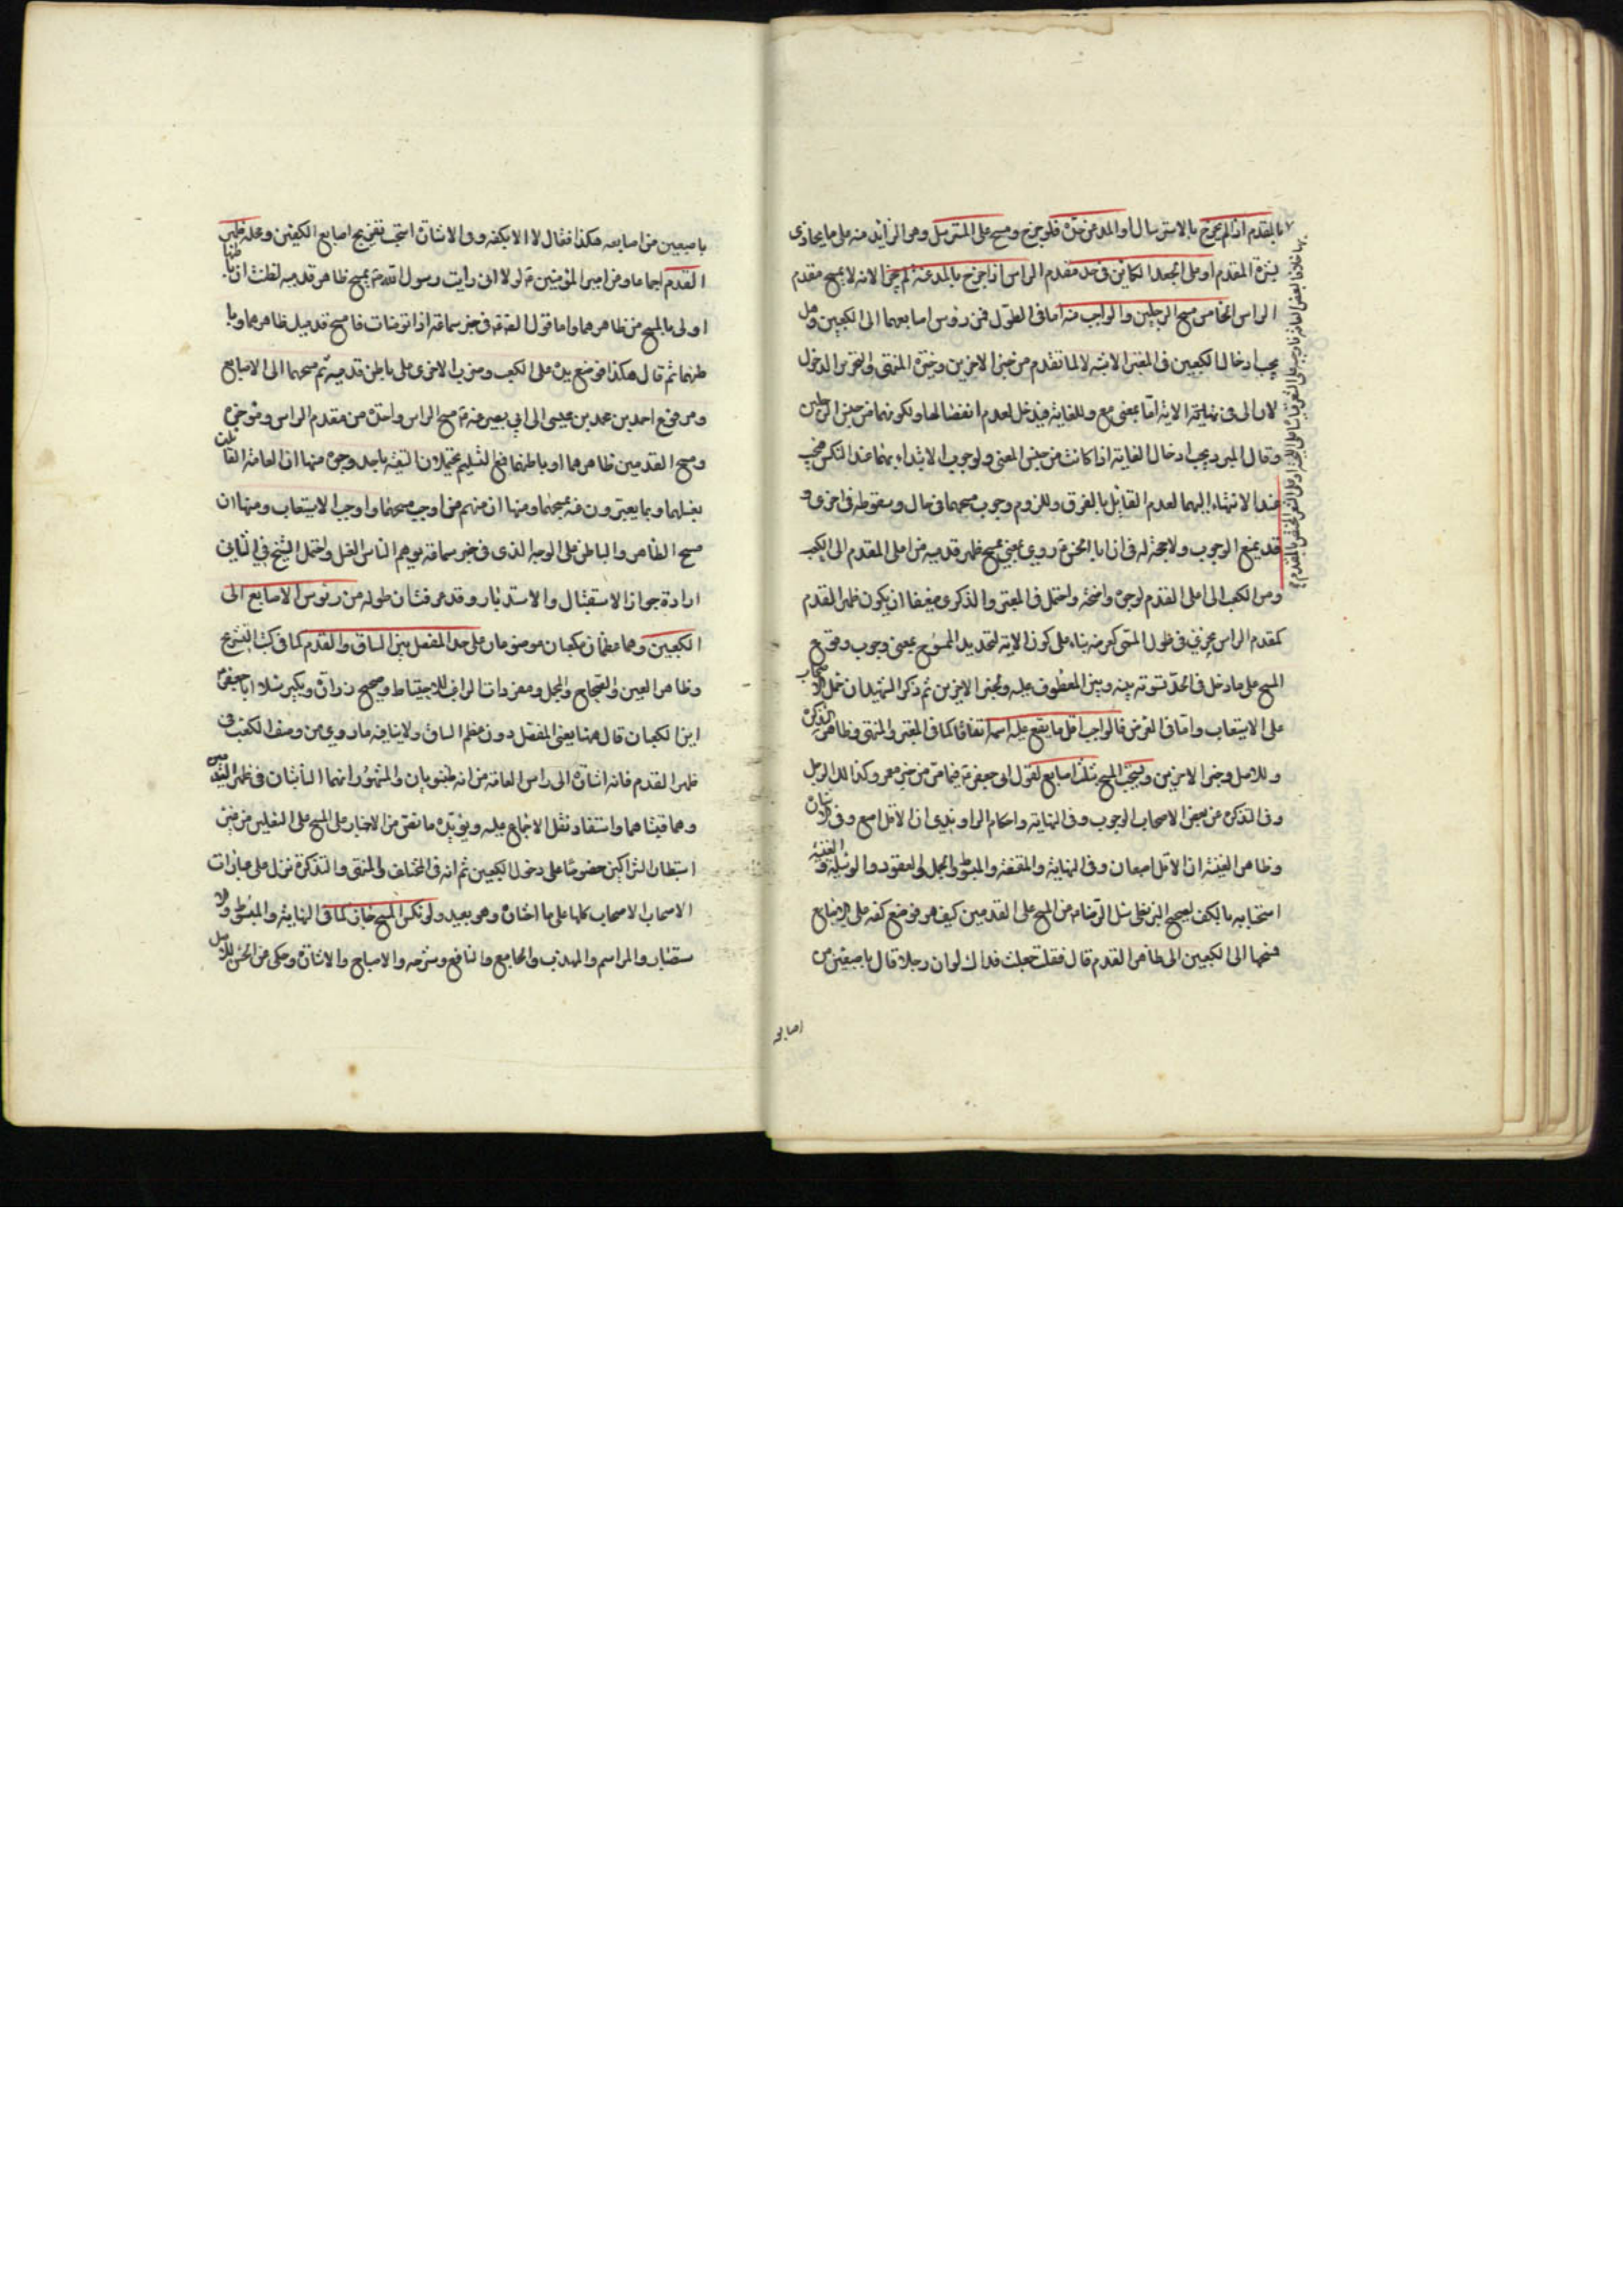 بالمقدم اذا لم يخرج بالاسترسال او المد عن حدّه فلو خرج ومسح على المسترسل وهو الزائد منه على ما يحاذى
بشرة المقدم او على الجعد الكائن فى حد مقدم الراس اذا خرج بالمد عنه لم يجز لانه لا يمسح مقدم
الراس الخامس مسح الرجلين والواجب منه اما فى الطول فمن رؤس اصابعهما الى الكعبين وهل
يجب ادخال الكعبين فى المعتبر الاشبه لا لما تقدم من خبر الاخوين وخيرة المنتهى والتحرير الدخول
لان الى فى نهاية الاية امّا بمعنى مع وللغاية فيدخل لعدم انفصالها ولكونها من جنس الرجلين
وقال المبرد يجب ادخال الغاية اذا كانت من جنس المغيى ولوجوب الابتداء بهما عند النكس فيجب
عند الانتهاء اليهما لعدم القائل بالفرق وللزوم وجوب مسحهما فى حال وسقوطه فى اخرى و
قد يمنع الوجوب ولا حجة له فى ان ابا الحسن ع روى بمنى يمسح ظهر قدميه من اعلى المقدم الى الكعب
ومن الكعب الى اعلى القدم لوجوه واضحة واحتمل فى المعتبر والذكرى ضعيفا ان يكون ظهر القدم
كمقدم الراس يجزئ فى طول المسح كعرضه بناء على كون الاية لتحديد الممسوح بمعنى وجوب وقوع
المسح على ما دخل فى الحد تسوية بينه وبين المعطوف عليه ولخبر الاخوين ثم ذكر الشهيد ان عمل الاصحاب
على الاستيعاب واما فى العرض فالواجب اقل ما يقع عليه اسمه اتفاقا كما فى المعتبر والمنتهى وظاهر التذكرة
وللاصل وخبر الاخوين ويستحب المسح بثلث اصابع لقول ابى جعفر ع فيما مرّ من خبر معمر وكذلك الرجل
وفى التذكرة عن بعض الاصحاب الوجوب وفى النهاية واحكام الراوندى ان الاقل اصبع وفى الاشارة
وظاهر الغنية ان الاقل اصبعان وفى النهاية والمقنعة والمبسوط والجمل والعقود والوسيلة والغنية
استحبابه بالكف لصحيح البزنطى سئل الرضا ع عن المسح على القدمين كيف هو فوضع كفه على الاصابع
فمسحها الى الكعبين الى ظاهر القدم قال فقلت جعلت فداك لو ان رجلا قال باصبعين من
اصابعه
باصبعين من اصابعه هكذا فقال لا الا بكفه وفى الاشارة استحب تفريج اصابع الكفين وعلى ظهر
القدم اجماعا وعن امير المؤمنين ع لو لا انى رايت رسول الله ص يمسح ظاهر قدميه لظننت ان باطنها
اولى بالمسح من ظاهرهما واما قول الصادق ع فى خبر سماعة اذا توضات فامسح قدميك ظاهرهما وبا
طنهما ثم قال هكذا فوضع يده على الكعب وضرب الاخرى على باطن قدميه ثم مسحهما الى الاصابع
ومرفوع احمد بن محمد بن عيسى الى ابى بصير عنه ع مسح الراس واحدة من مقدم الراس وموخره
ومسح القدمين ظاهرهما او باطنهما فمع التسليم يحتملان التقية باحد وجوه منها ان العامة القائلين
بغسلهما وبما يعبرون عنه بمسحهما ومنها ان منهم من اوجب مسحهما واوجب الاستيعاب ومنها ان
مسح الظاهر والباطن على الوجه الذى فى خبر سماعة يوهم الناس الغسل واحتمل الشيخ فى الثانى
ارادة جواز الاستقبال والاستدبار وقد عرفت ان طوله من رؤس الاصابع الى
الكعبين وهما عظمان مكعبان موضوعان على حد المفصل بين الساق والقدم كما فى كتب التشريح
وظاهر العين والصحاح والمجمل ومفردات الراغب للاحتياط وصحيح زرارة وبكير سئلا ابا جعفر ع
اين الكعبان قال ههنا يعنى المفصل دون عظم الساق ولا ينافيه ما روى من وصف الكعب فى
ظهر القدم فانه اشارة الى راس العامة من انه طنبوبان والمشهور انهما الناتئان فى ظهر القدمين
وهما قبتاهما واستفاد نقل الاجماع عليه ويؤيده ما نص من الاخبار على المسح على النعلين من غير
استبطان الشراكين خصوصا على دخول الكعبين ثم انه فى المختلف والمنتهى والتذكرة نزل على عبارات
الاصحاب الاصحاب كلها على ما اختاره وهو بعيد ولو نكس المسح جاز كما فى النهاية والمبسوط والا
ستبصار والمراسم والمهذب والجامع والنافع وشرحه والاصباح والاشارة وحكى عن الحسن للاصل